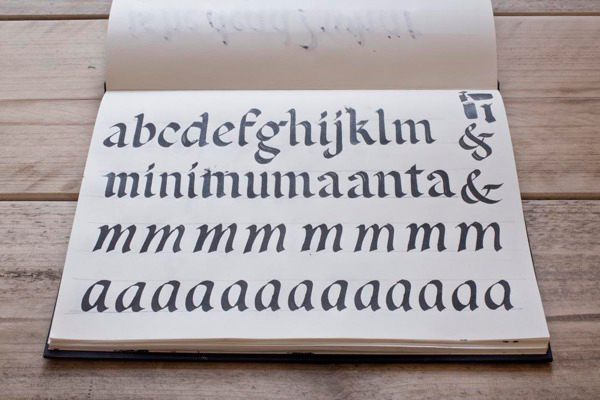 abcdefghijklm &
minimumaanta &
mmmmmmmm
aaaaaaaaaaaaaaaa